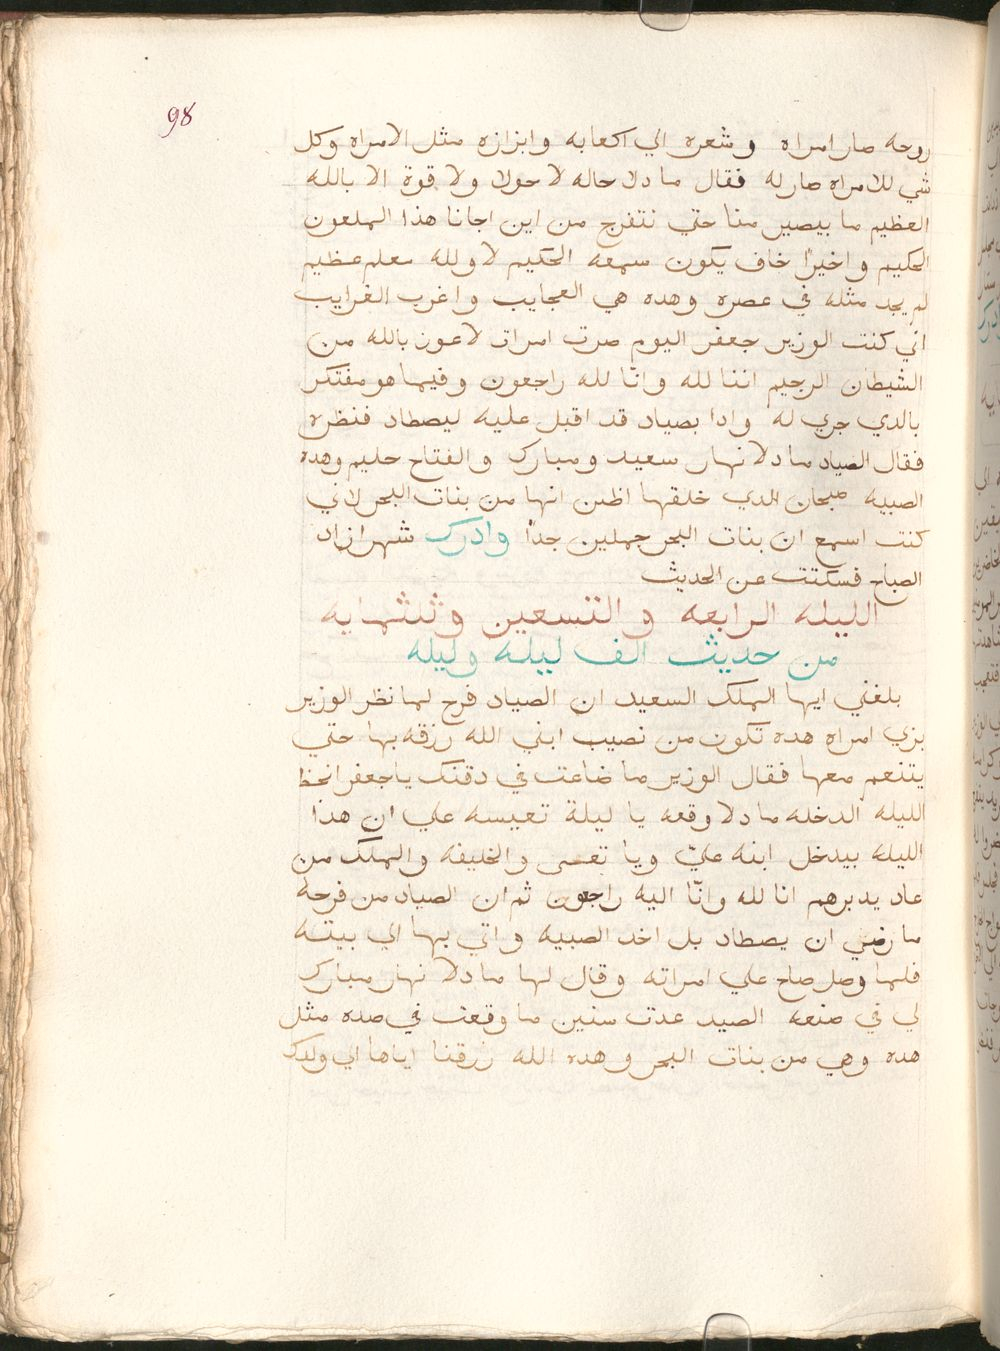 98
روحه صار امراه وشعره الي اكعابه وابزازه مثل الامراه وكل
شي للامراه صار له فقال ما دلا حاله لا حولا ولا قوة الا بالله
العظيم ما بيصير منا حتي نتفرج من اين اجانا هذا الملعون
الحكيم واخيرًا خاف يكون سمعه الحكيم لاولله معلم عظيم
لم يجد مثله في عصره وهده هي العجايب واغرب الغرايب
اني كنت الوزير جعفر اليوم صرت امراة لاعون بالله من
الشيطان الرجيم اننا لله وانّا لله راجعون وفيما هو مفتكر
بالدي جري له وادا بصياد قد اقبل عليه ليصطاد فنظره
فقال الصياد ما دلا نهار سعيد ومبارك والفتاح حليم وهده
الصبيه صبحان الدي خلقها اظن انها من بنات البحر لاني
كنت اسمع ان بنات البحر جملين جدًا وادرك شهرازاد
الصباح فسكتت عن الحديث
الليله الرابعه والتسعين وثلثمايه
من حديث الف ليله وليله
بلغني ايها الملك السعيد ان الصياد فرح لما نظر الوزير
بزي امراه هده تكون من نصيب ابني الله رزقه بها حتي
يتنعم معها فقال الوزير ما ضاعت في دقنك يا جعفر انحظ
الليله الدخله ما دلا وقعه يا ليلة تعيسه علي ان هذا
الليله بيدخل ابنه عليّ ويا تعسى والخليفه والملك من
عاد يدبرهم انا لله وانّا اليه راجعون ثم ان الصياد من فرحه
ما رضي ان يصطاد بل اخد الصبيه واتي بها الي بيته
فلما وصل صاح علي امراته وقال لها ما دلا نهار مبارك
لي في صنعه الصيد عدت سنين ما وقعت في صده مثل
هده وهي من بنات البحر وهده الله رزقنا اياها الي ولدك